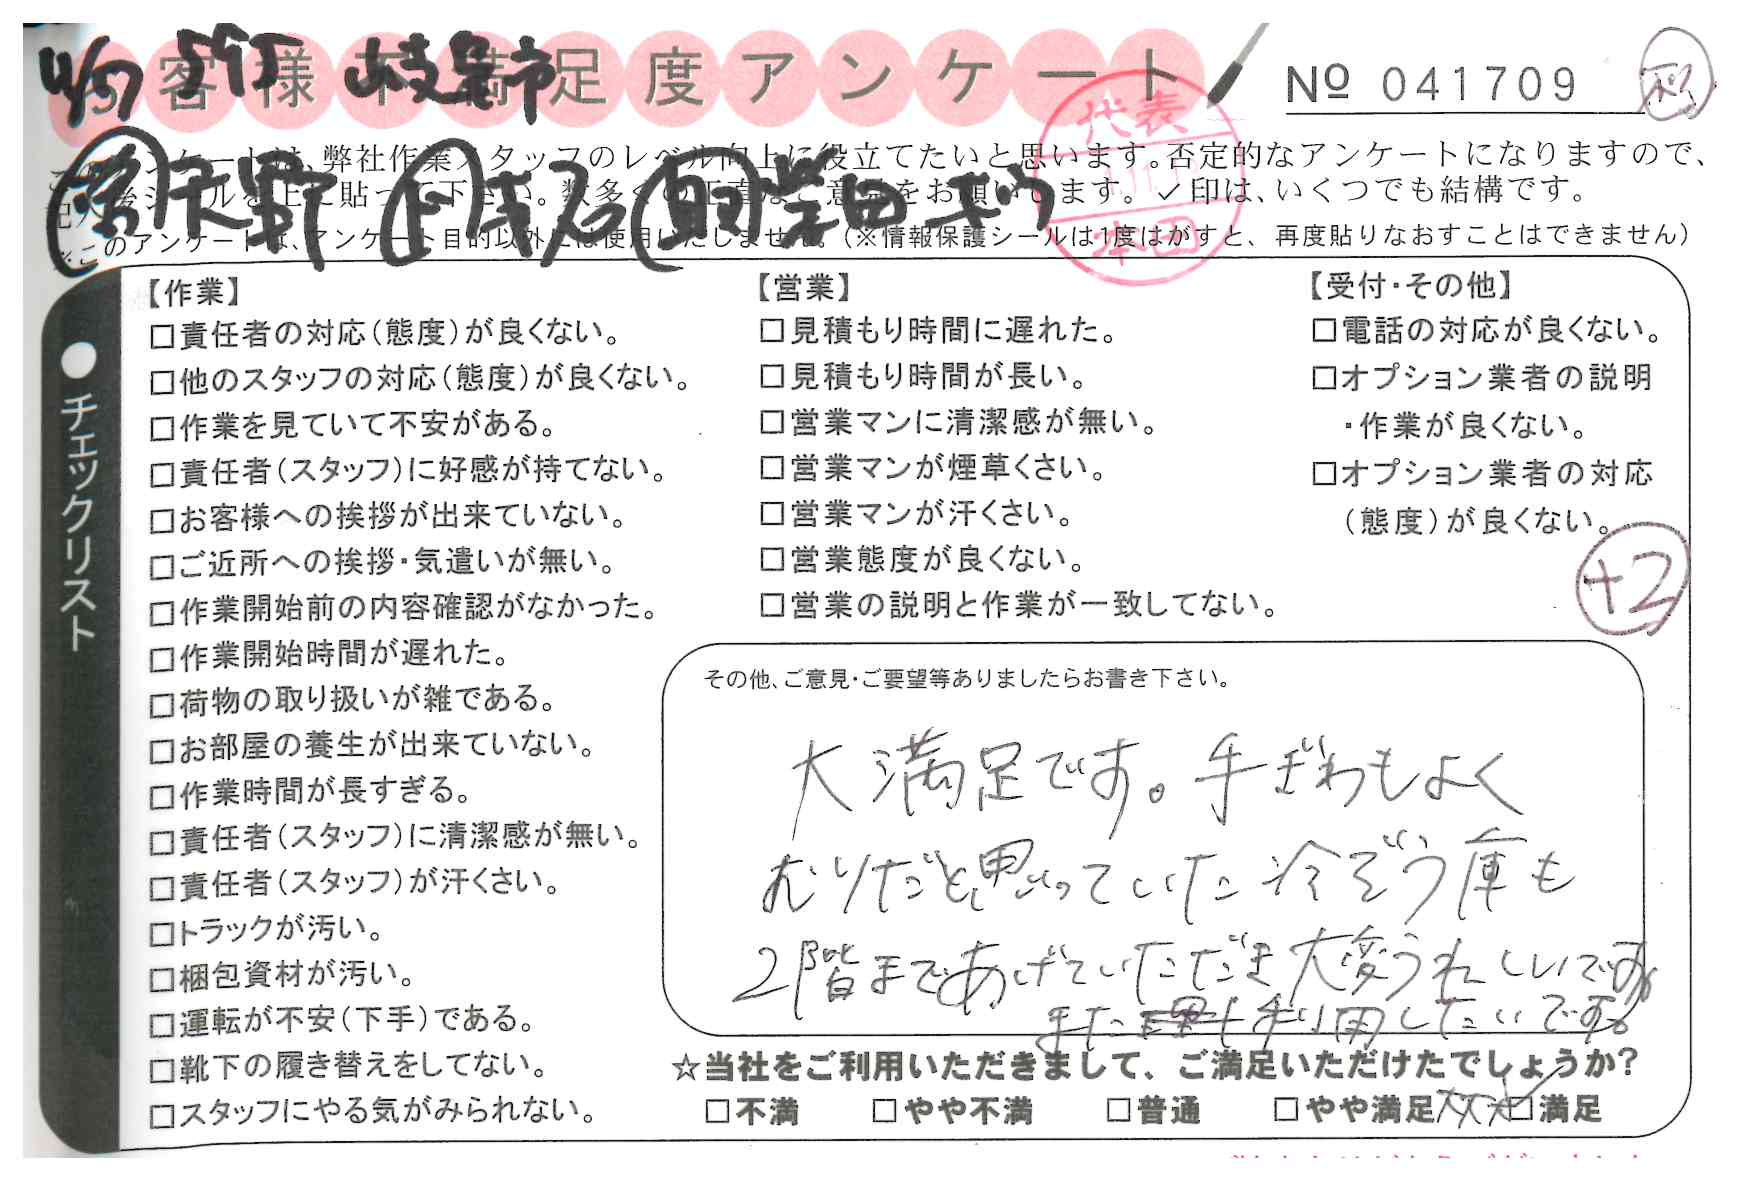 お客様不満足度アンケート
№ 041709
岐阜市
このアンケートは、弊社作業スタッフのレベル向上に役立てたいと思います。否定的なアンケートになりますので、
記入後シールを上に貼って下さい。数多くの正直なご意見をお願いします。✓印は、いくつでも結構です。
※このアンケートは、アンケート目的以外には使用いたしません。(※情報保護シールは1度はがすと、再度貼りなおすことはできません)
天野
柴田
代表
本田
+2
●チェックリスト
【作業】
□責任者の対応(態度)が良くない。
□他のスタッフの対応(態度)が良くない。
□作業を見ていて不安がある。
□責任者(スタッフ)に好感が持てない。
□お客様への挨拶が出来ていない。
□ご近所への挨拶・気遣いが無い。
□作業開始前の内容確認がなかった。
□作業開始時間が遅れた。
□荷物の取り扱いが雑である。
□お部屋の養生が出来ていない。
□作業時間が長すぎる。
□責任者(スタッフ)に清潔感が無い。
□責任者(スタッフ)が汗くさい。
□トラックが汚い。
□梱包資材が汚い。
□運転が不安(下手)である。
□靴下の履き替えをしてない。
□スタッフにやる気がみられない。
【営業】
□見積もり時間に遅れた。
□見積もり時間が長い。
□営業マンに清潔感が無い。
□営業マンが煙草くさい。
□営業マンが汗くさい。
□営業態度が良くない。
□営業の説明と作業が一致してない。
【受付・その他】
□電話の対応が良くない。
□オプション業者の説明
・作業が良くない。
□オプション業者の対応
(態度)が良くない。
その他、ご意見・ご要望等ありましたらお書き下さい。
大満足です。手ぎわもよく
むりだと思っていた冷ぞう庫も
2階まであげていただき大変うれしいです。
また利用したいです。
☆当社をご利用いただきまして、ご満足いただけたでしょうか?
□不満 □やや不満 □普通 □やや満足 大大大☑満足